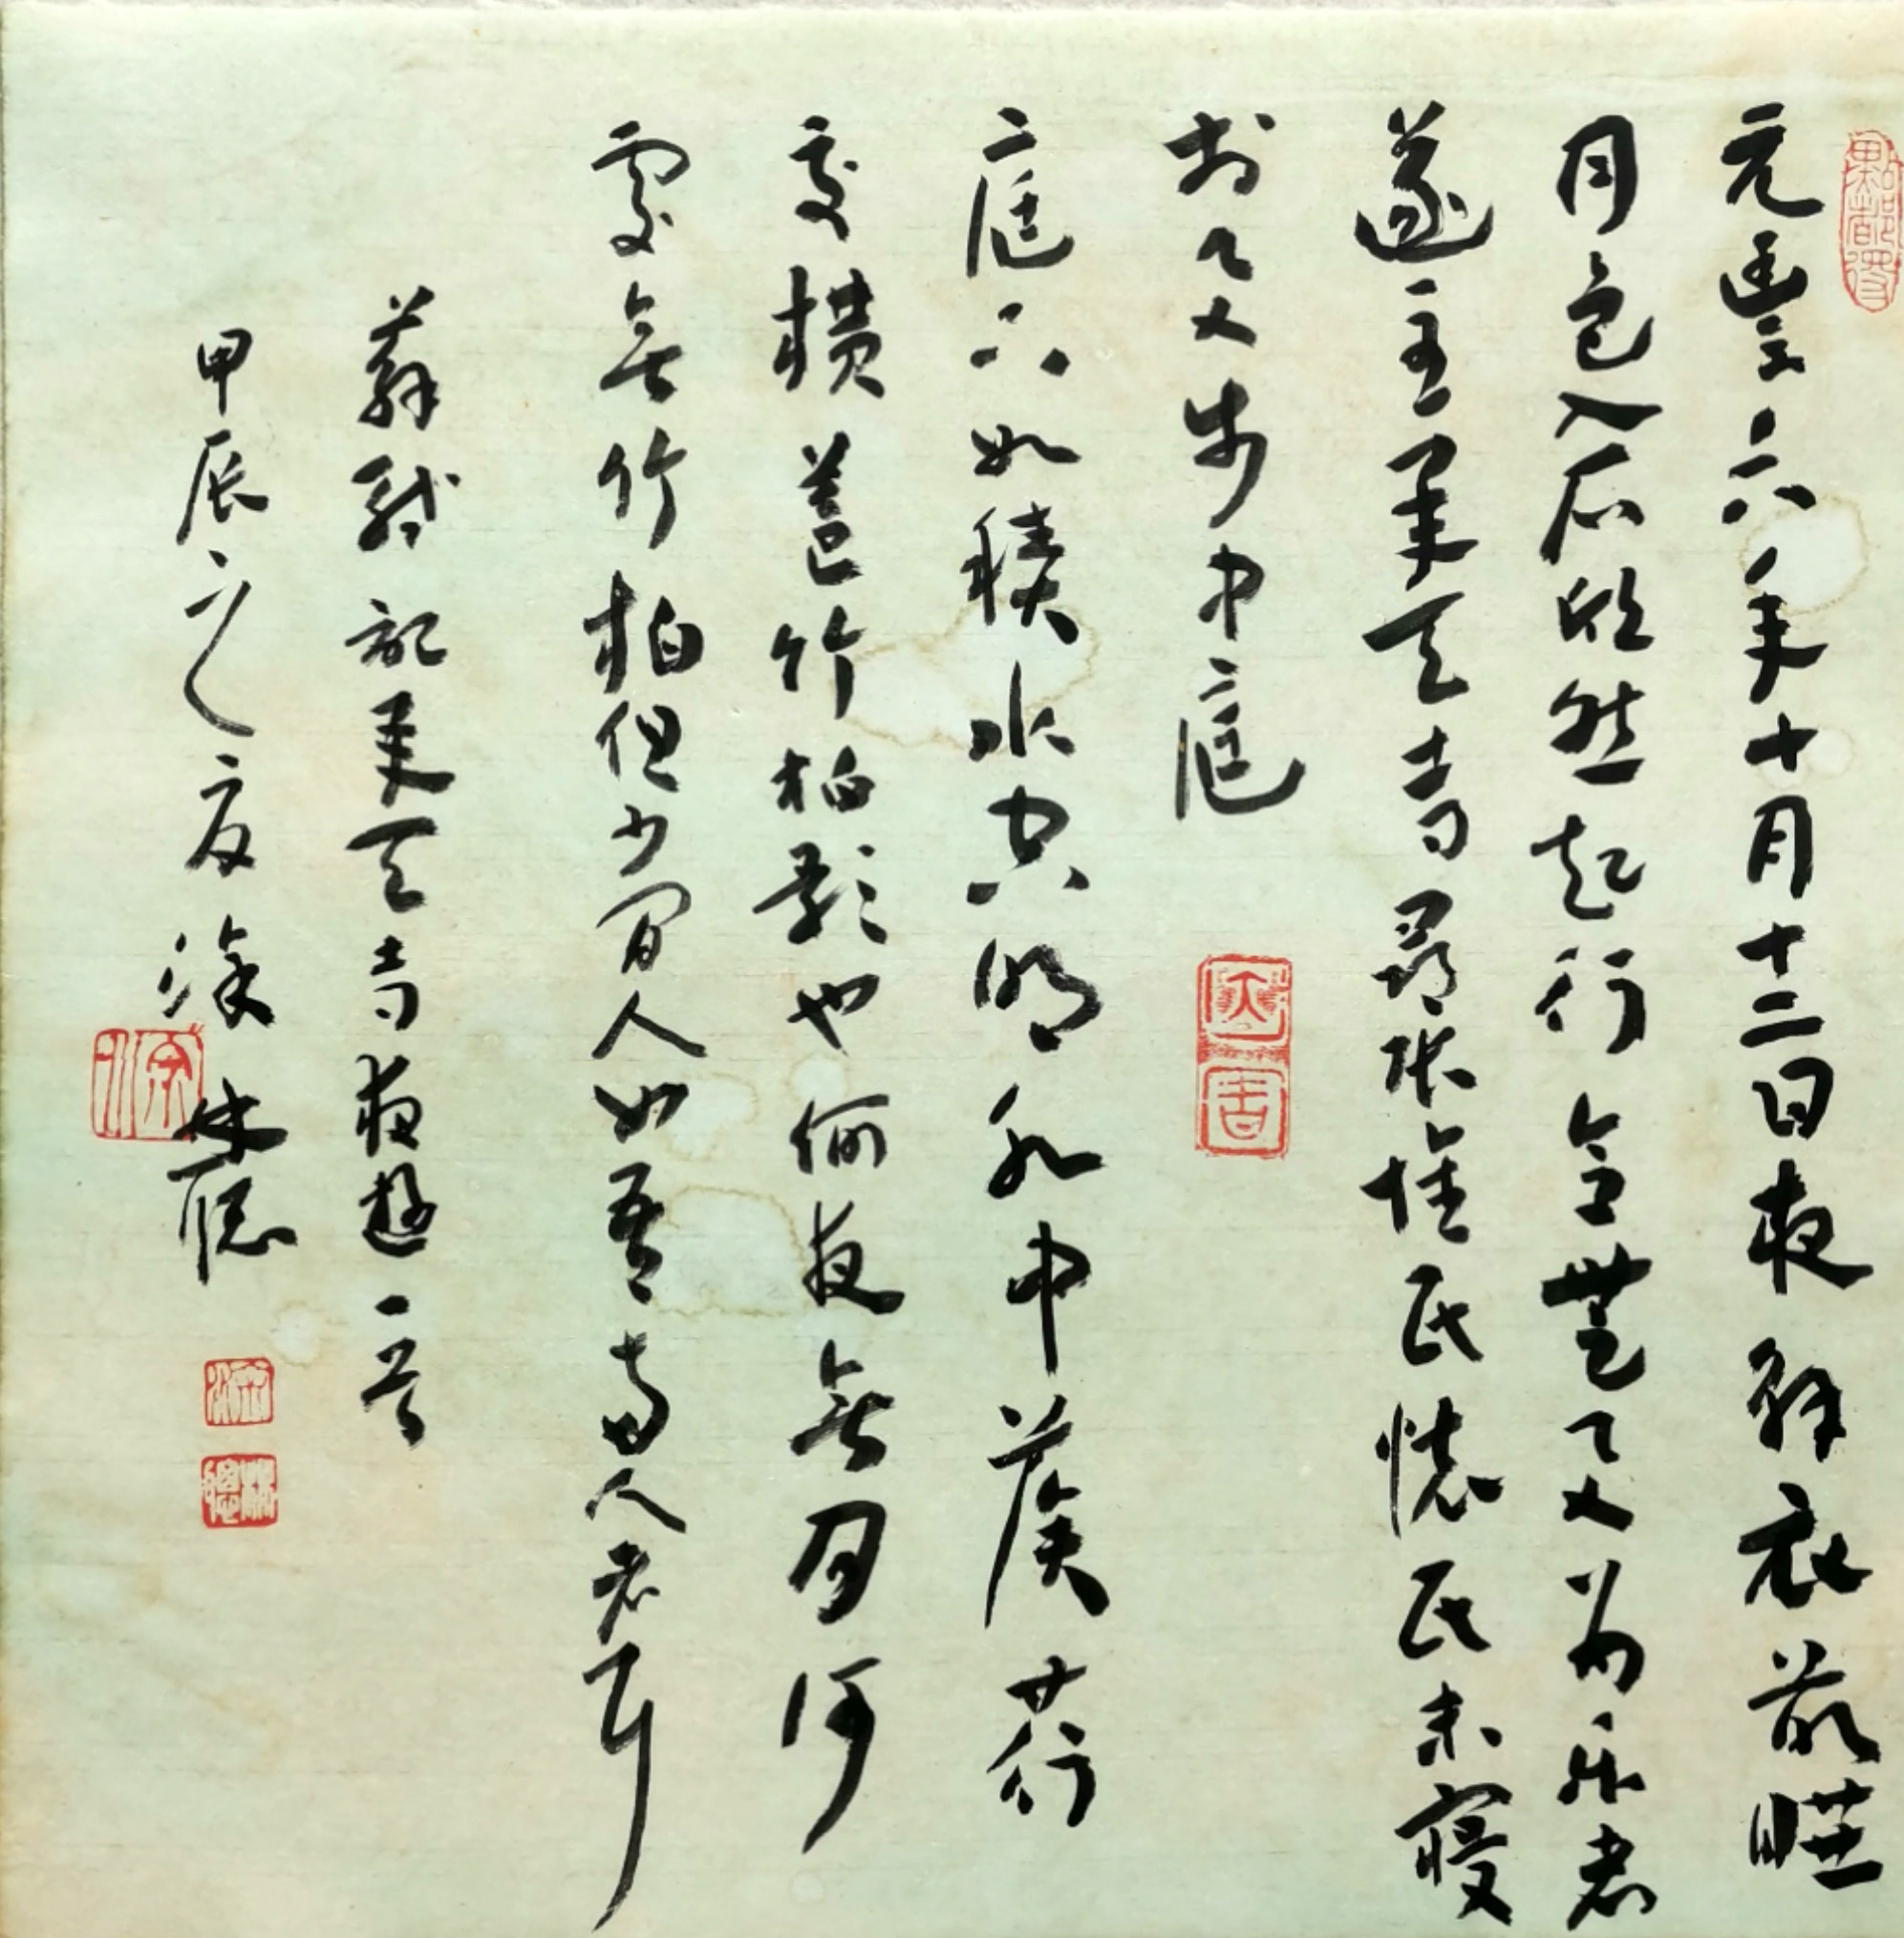 元豐六年十月十二日夜解衣欲睡
月色入戶欣然起行念無与为乐者
遂至承天寺尋張懷民懷民未寢
相与步中庭
庭下如積水空明水中藻荇
交橫蓋竹柏影也何夜無月何
處無竹柏但少閒人如吾兩人者耳
蘇軾記承天寺夜遊一首
甲辰之夏涂林聰